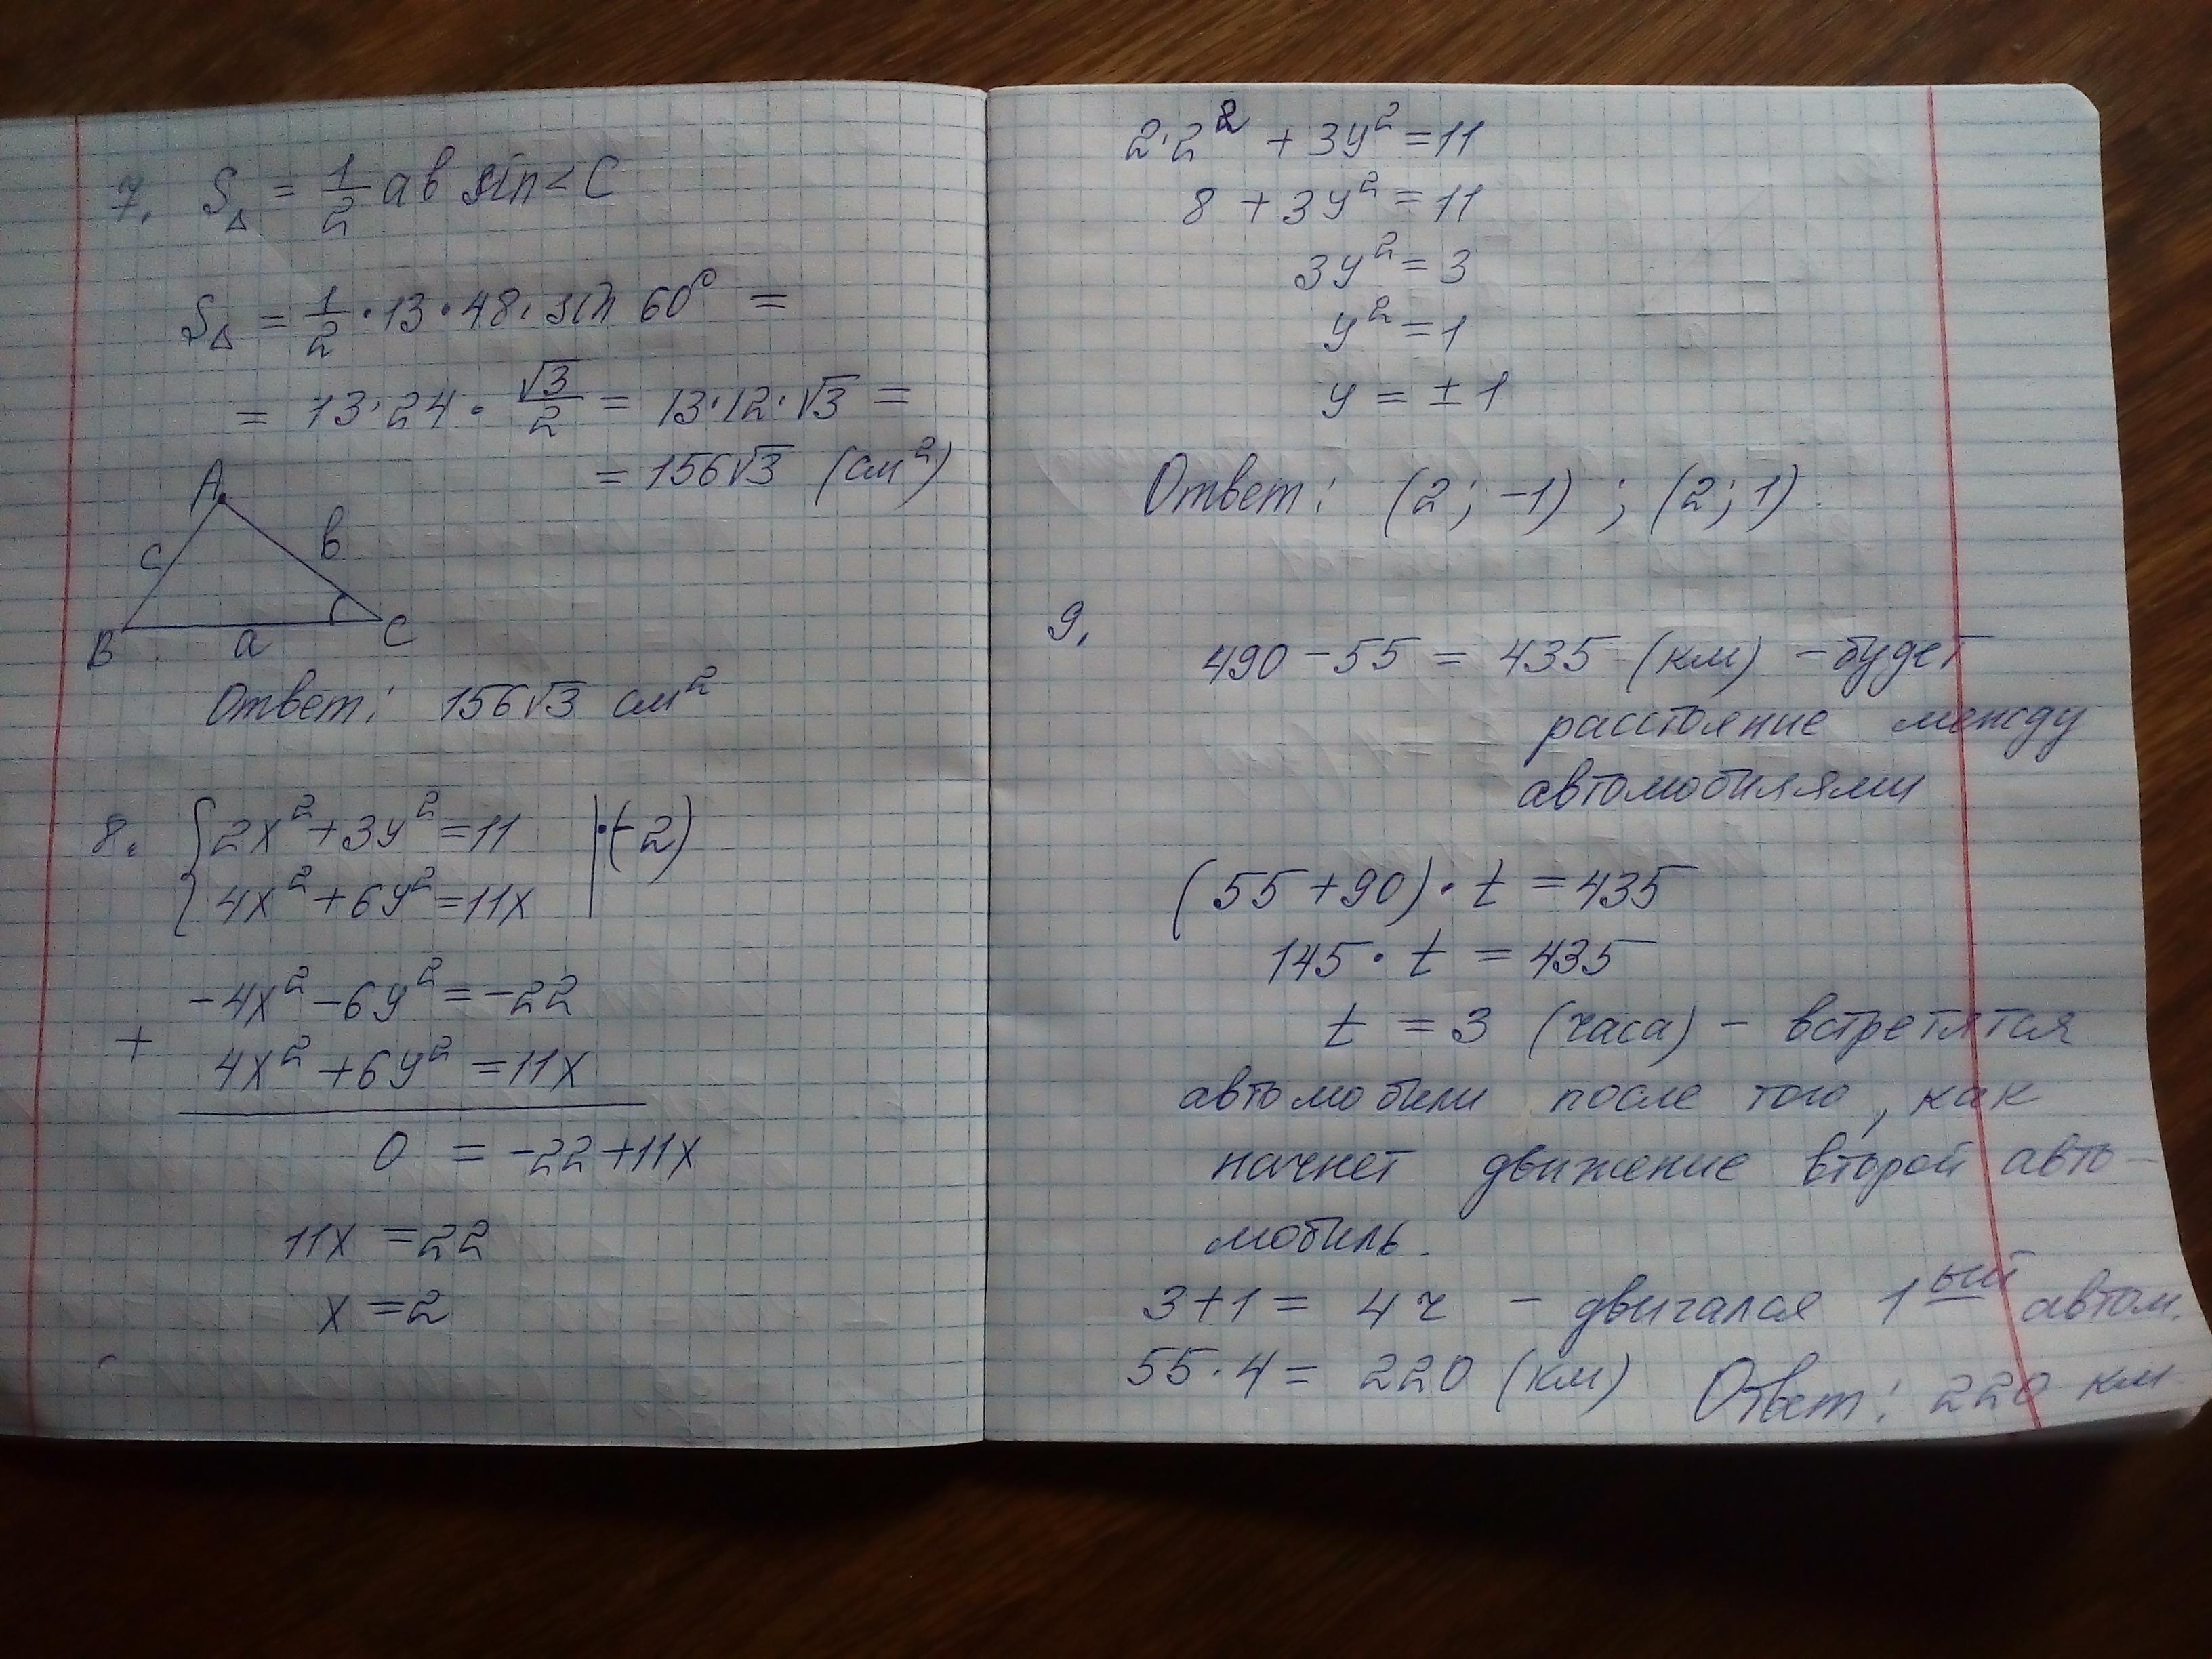 7. S△ = 1/2 ab sin∠C
S△ = 1/2 · 13 · 48 · sin 60° =
= 13 · 24 · √3/2 = 13 · 12 · √3 =
= 156√3 (см²)
A
c
b
B
a
C
Ответ: 156√3 см²
8. { 2x² + 3y² = 11 | ·(-2)
4x² + 6y² = 11x
-4x² - 6y² = -22
+
4x² + 6y² = 11x
0 = -22 + 11x
11x = 22
x = 2
2·2² + 3y² = 11
8 + 3y² = 11
3y² = 3
y² = 1
y = ±1
Ответ: (2; -1) ; (2; 1).
9.
490 - 55 = 435 (км) - будет
расстояние между
автомобилями
(55 + 90) · t = 435
145 · t = 435
t = 3 (часа) - встретятся
автомобили после того, как
начнет движение второй авто-
мобиль.
3 + 1 = 4 ч - двигался 1ый автом.
55 · 4 = 220 (км) Ответ: 220 км